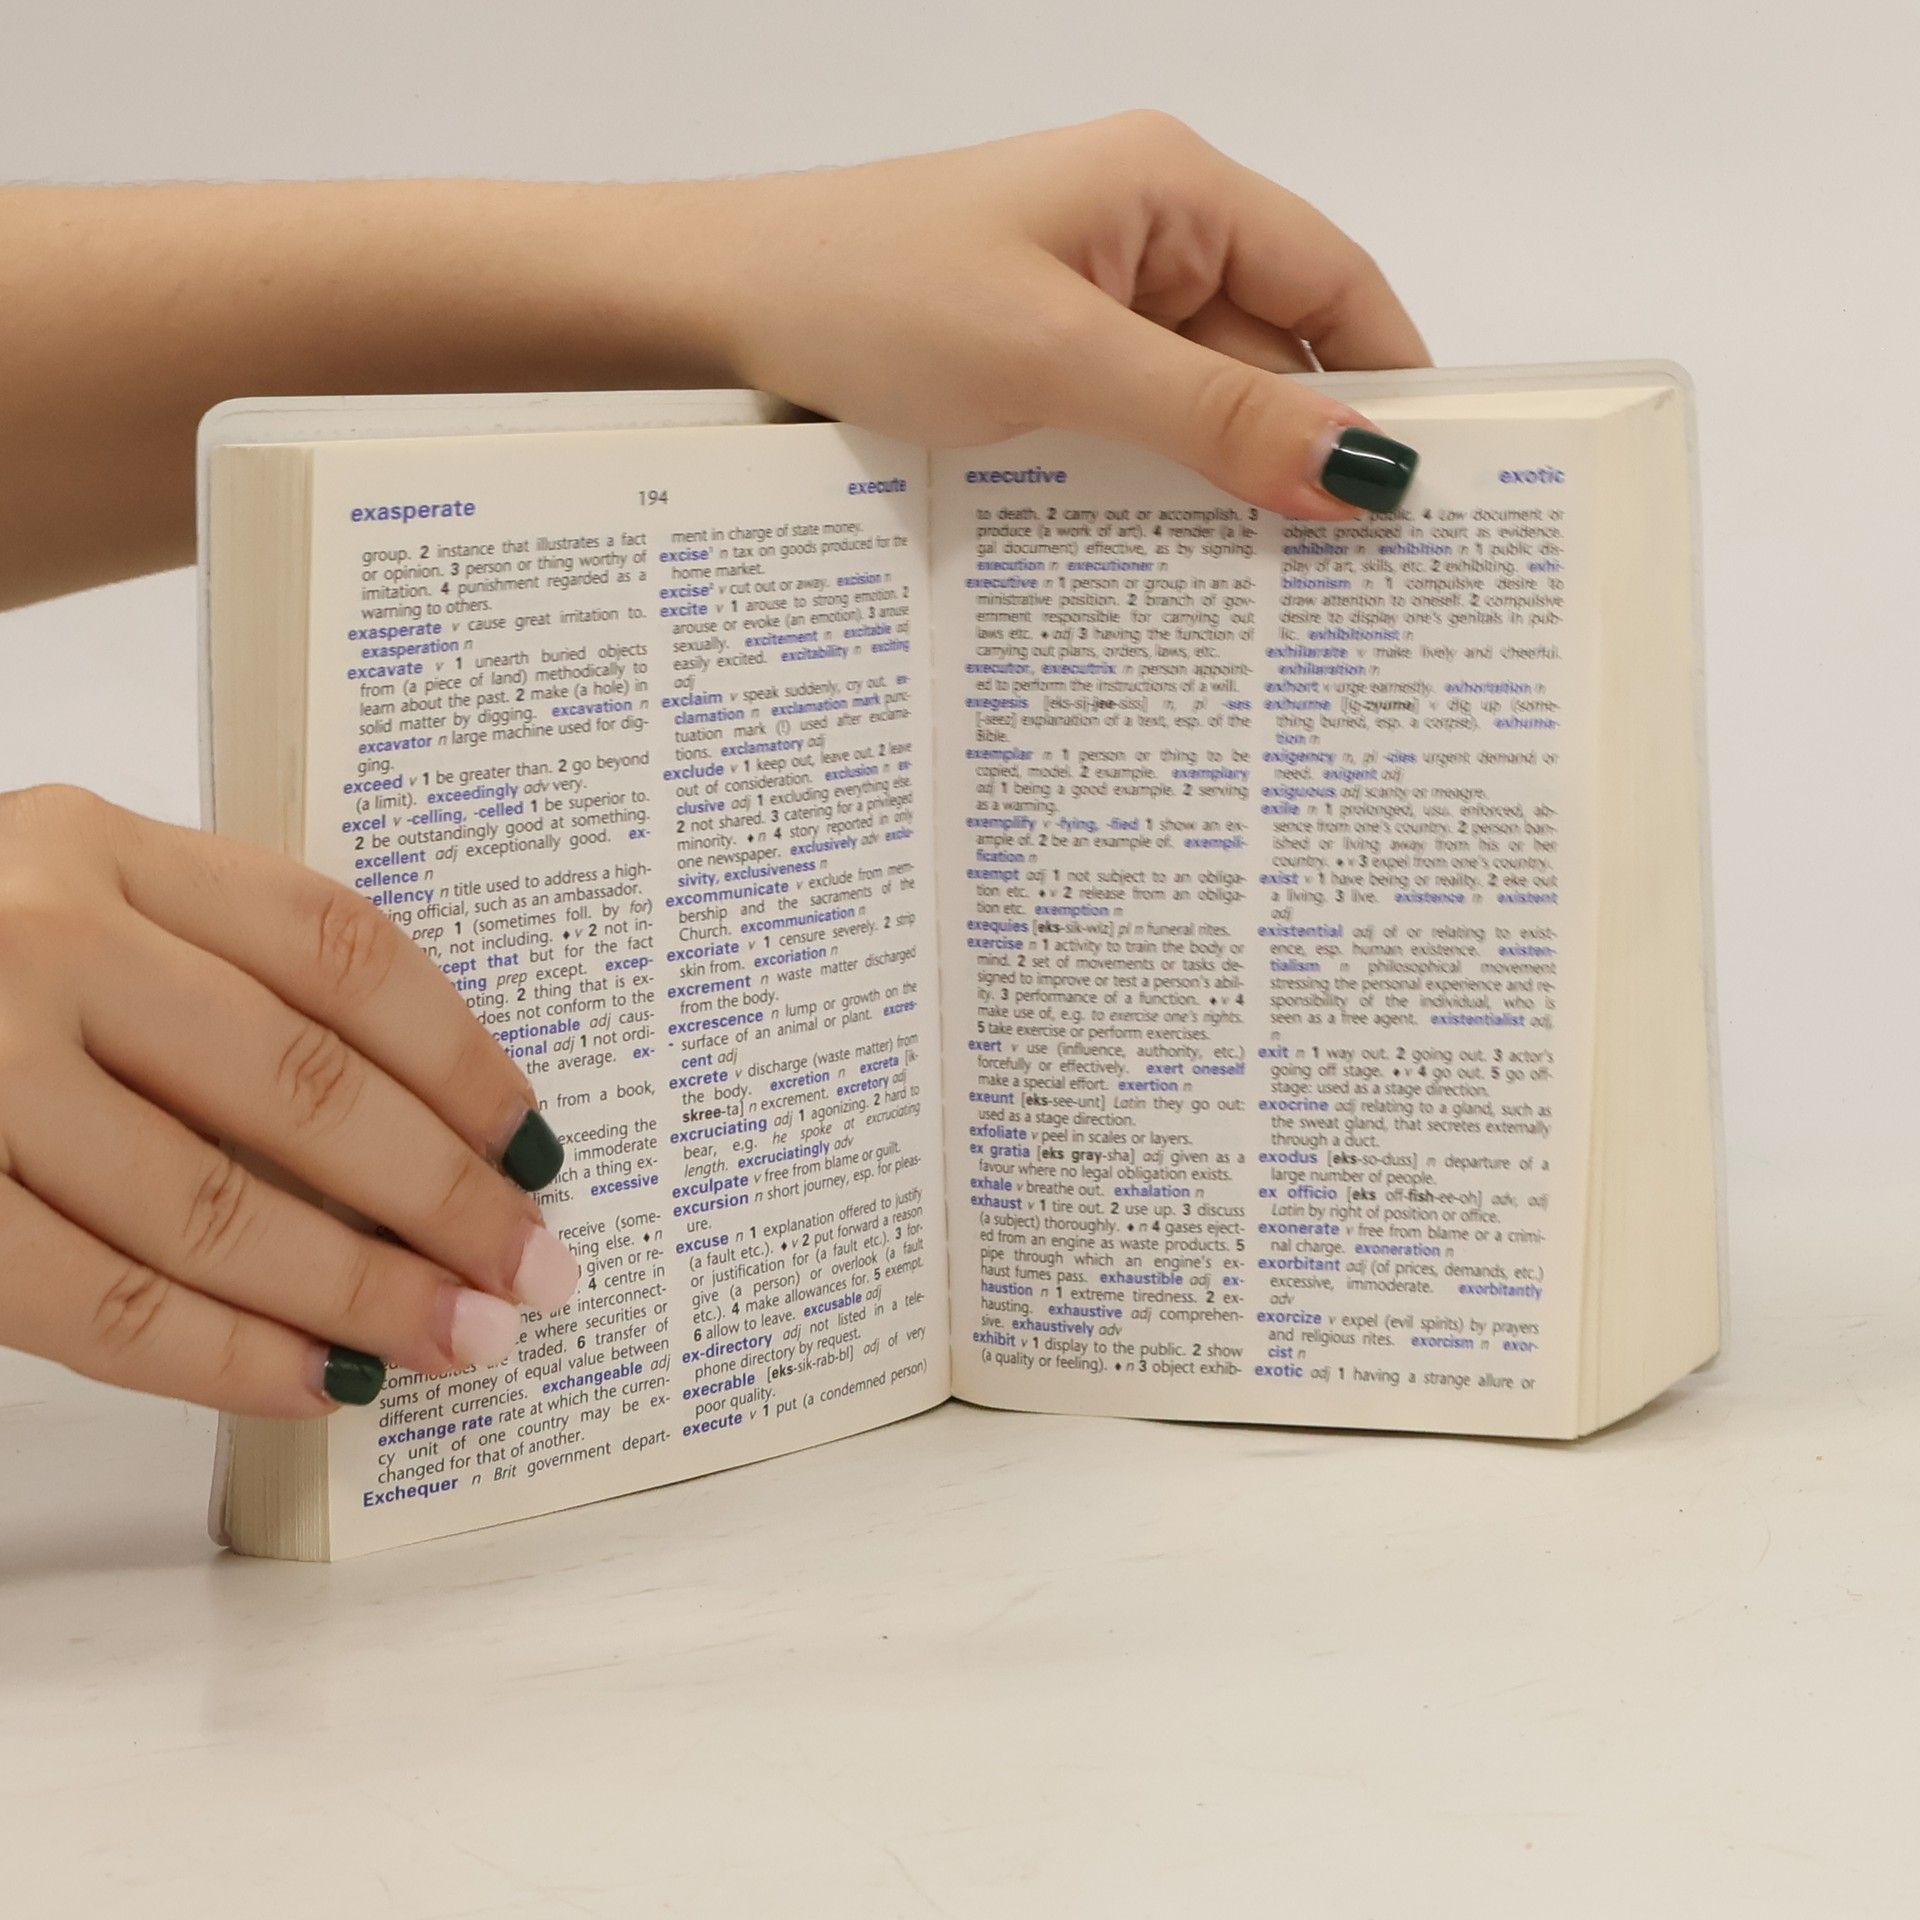 exasperate
194
execute
group. 2 instance that illustrates a fact
or opinion. 3 person or thing worthy of
imitation. 4 punishment regarded as a
warning to others.
exasperate v cause great irritation to.
exasperation n
excavate v 1 unearth buried objects
from (a piece of land) methodically to
learn about the past. 2 make (a hole) in
solid matter by digging. excavation n
excavator n large machine used for dig-
ging.
exceed v 1 be greater than. 2 go beyond
(a limit). exceedingly adv very.
excel v -celling, -celled 1 be superior to.
2 be outstandingly good at something.
excellent adj exceptionally good. ex-
cellence n
ellency n title used to address a high-
ing official, such as an ambassador.
prep 1 (sometimes foll. by for)
n, not including. ♦ v 2 not in-
cept that but for the fact
ting prep except. excep-
pting. 2 thing that is ex-
does not conform to the
ceptionable adj caus-
tional adj 1 not ordi-
the average. ex-
n from a book,
exceeding the
immoderate
ich a thing ex-
limits. excessive
receive (some-
hing else. ♦ n
given or re-
4 centre in
are interconnect-
where securities or
traded. 6 transfer of
sums of money of equal value between
different currencies. exchangeable adj
exchange rate rate at which the curren-
cy unit of one country may be ex-
changed for that of another.
Exchequer n Brit government depart-
ment in charge of state money.
excise¹ n tax on goods produced for the
home market.
excise² v cut out or away. excision n
excite v 1 arouse to strong emotion. 2
arouse or evoke (an emotion). 3 arouse
sexually. excitement n excitable adj
easily excited. excitability n exciting
adj
exclaim v speak suddenly, cry out. ex-
clamation n exclamation mark punc-
tuation mark (!) used after exclama-
tions. exclamatory adj
exclude v 1 keep out, leave out. 2 leave
out of consideration. exclusion n ex-
clusive adj 1 excluding everything else.
2 not shared. 3 catering for a privileged
minority. ♦ n 4 story reported in only
one newspaper. exclusively adv exclu-
sivity, exclusiveness n
excommunicate v exclude from mem-
bership and the sacraments of the
Church. excommunication n
excoriate v 1 censure severely. 2 strip
skin from. excoriation n
excrement n waste matter discharged
from the body.
excrescence n lump or growth on the
surface of an animal or plant. excres-
cent adj
excrete v discharge (waste matter) from
the body. excretion n excreta [ik-
skree-ta] n excrement. excretory adj
excruciating adj 1 agonizing. 2 hard to
bear, e.g. he spoke at excruciating
length. excruciatingly adv
exculpate v free from blame or guilt.
excursion n short journey, esp. for pleas-
ure.
excuse n 1 explanation offered to justify
(a fault etc.). ♦ v 2 put forward a reason
or justification for (a fault etc.). 3 for-
give (a person) or overlook (a fault
etc.). 4 make allowances for. 5 exempt.
6 allow to leave. excusable adj
ex-directory adj not listed in a tele-
phone directory by request.
execrable [eks-sik-rab-bl] adj of very
poor quality.
execute v 1 put (a condemned person)
executive
exotic
to death. 2 carry out or accomplish. 3
produce (a work of art). 4 render (a le-
gal document) effective, as by signing.
execution n executioner n
executive n 1 person or group in an ad-
ministrative position. 2 branch of gov-
ernment responsible for carrying out
laws etc. ♦ adj 3 having the function of
carrying out plans, orders, laws, etc.
executor, executrix n person appoint-
ed to perform the instructions of a will.
exegesis [eks-sij-jee-siss] n, pl -ses
[-seez] explanation of a text, esp. of the
Bible.
exemplar n 1 person or thing to be
copied, model. 2 example. exemplary
adj 1 being a good example. 2 serving
as a warning.
exemplify v -fying, -fied 1 show an ex-
ample of. 2 be an example of. exempli-
fication n
exempt adj 1 not subject to an obliga-
tion etc. ♦ v 2 release from an obliga-
tion etc. exemption n
exequies [eks-sik-wiz] pl n funeral rites.
exercise n 1 activity to train the body or
mind. 2 set of movements or tasks de-
signed to improve or test a person's abil-
ity. 3 performance of a function. ♦ v 4
make use of, e.g. to exercise one's rights.
5 take exercise or perform exercises.
exert v use (influence, authority, etc.)
forcefully or effectively. exert oneself
make a special effort. exertion n
exeunt [eks-see-unt] Latin they go out:
used as a stage direction.
exfoliate v peel in scales or layers.
ex gratia [eks gray-sha] adj given as a
favour where no legal obligation exists.
exhale v breathe out. exhalation n
exhaust v 1 tire out. 2 use up. 3 discuss
(a subject) thoroughly. ♦ n 4 gases eject-
ed from an engine as waste products. 5
pipe through which an engine's ex-
haust fumes pass. exhaustible adj ex-
haustion n 1 extreme tiredness. 2 ex-
hausting. exhaustive adj comprehen-
sive. exhaustively adv
exhibit v 1 display to the public. 2 show
(a quality or feeling). ♦ n 3 object exhib-
public. 4 Law document or
object produced in court as evidence.
exhibitor n exhibition n 1 public dis-
play of art, skills, etc. 2 exhibiting. exhi-
bitionism n 1 compulsive desire to
draw attention to oneself. 2 compulsive
desire to display one's genitals in pub-
lic. exhibitionist n
exhilarate v make lively and cheerful.
exhilaration n
exhort v urge earnestly. exhortation n
exhume [ig-zyume] v dig up (some-
thing buried, esp. a corpse). exhuma-
tion n
exigency n, pl -cies urgent demand or
need. exigent adj
exiguous adj scanty or meagre.
exile n 1 prolonged, usu. enforced, ab-
sence from one's country. 2 person ban-
ished or living away from his or her
country. ♦ v 3 expel from one's country.
exist v 1 have being or reality. 2 eke out
a living. 3 live. existence n existent
adj
existential adj of or relating to exist-
ence, esp. human existence. existen-
tialism n philosophical movement
stressing the personal experience and re-
sponsibility of the individual, who is
seen as a free agent. existentialist adj,
n
exit n 1 way out. 2 going out. 3 actor's
going off stage. ♦ v 4 go out. 5 go off-
stage: used as a stage direction.
exocrine adj relating to a gland, such as
the sweat gland, that secretes externally
through a duct.
exodus [eks-so-duss] n departure of a
large number of people.
ex officio [eks off-fish-ee-oh] adv, adj
Latin by right of position or office.
exonerate v free from blame or a crimi-
nal charge. exoneration n
exorbitant adj (of prices, demands, etc.)
excessive, immoderate. exorbitantly
adv
exorcize v expel (evil spirits) by prayers
and religious rites. exorcism n exor-
cist n
exotic adj 1 having a strange allure or